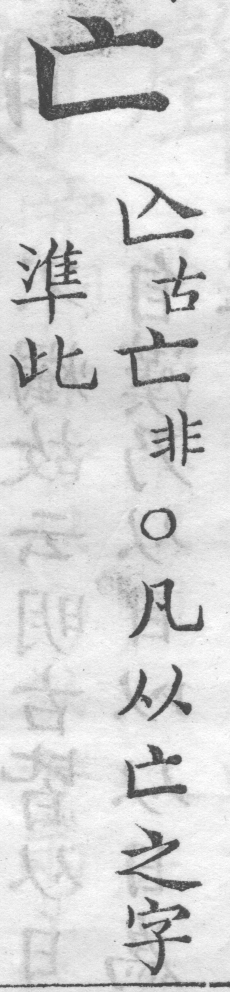 亡
亾古亡非○凡从亡之字
準此